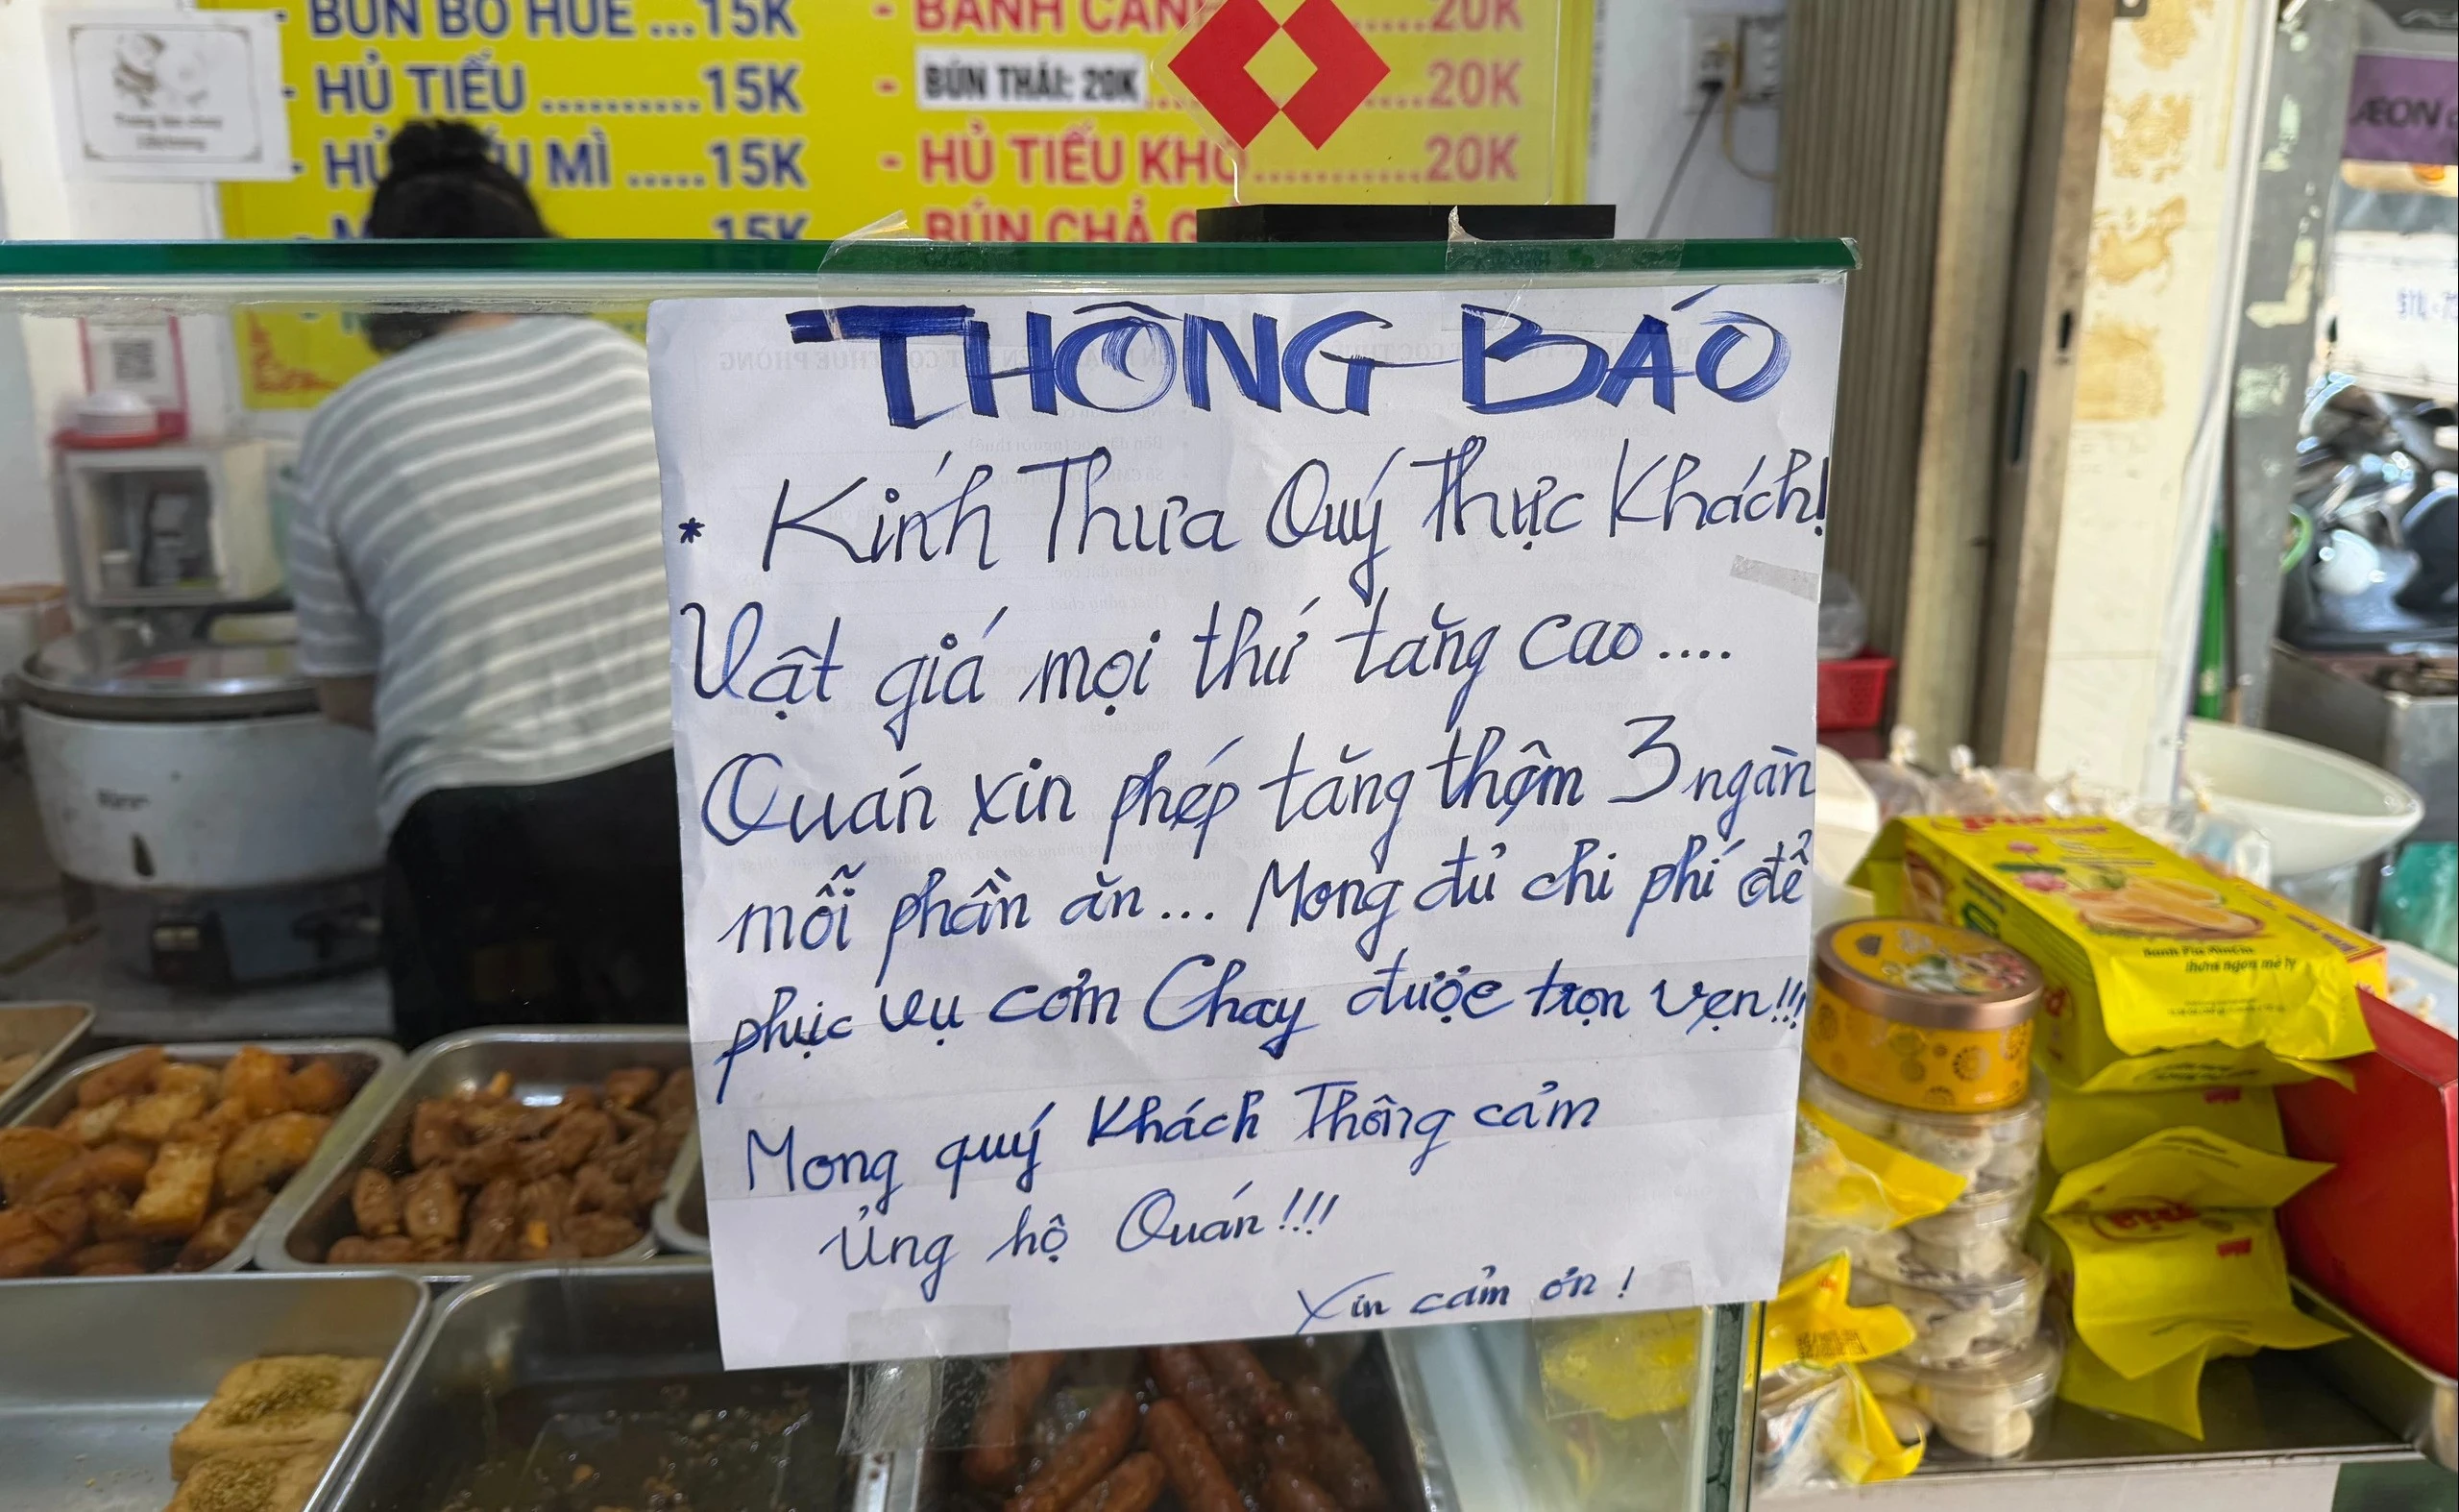 - BÚN BÒ HUẾ ...15K
- HỦ TIẾU ..........15K
MÌ .....15K
15K
20K
- BÚN THÁI: 20K ....20K
- HỦ TIẾU KHÔ ...........20K
- BÚN CHẢ
THÔNG BÁO
* Kính Thưa Quý Thực Khách!
Vật giá mọi thứ tăng cao....
Quán xin phép tăng thêm 3 ngàn
mỗi phần ăn... Mong đủ chi phí để
phục vụ cơm Chay được trọn vẹn!!!
Mong quý Khách Thông cảm
Ủng hộ Quán!!!
Xin cảm ơn!
ÆON